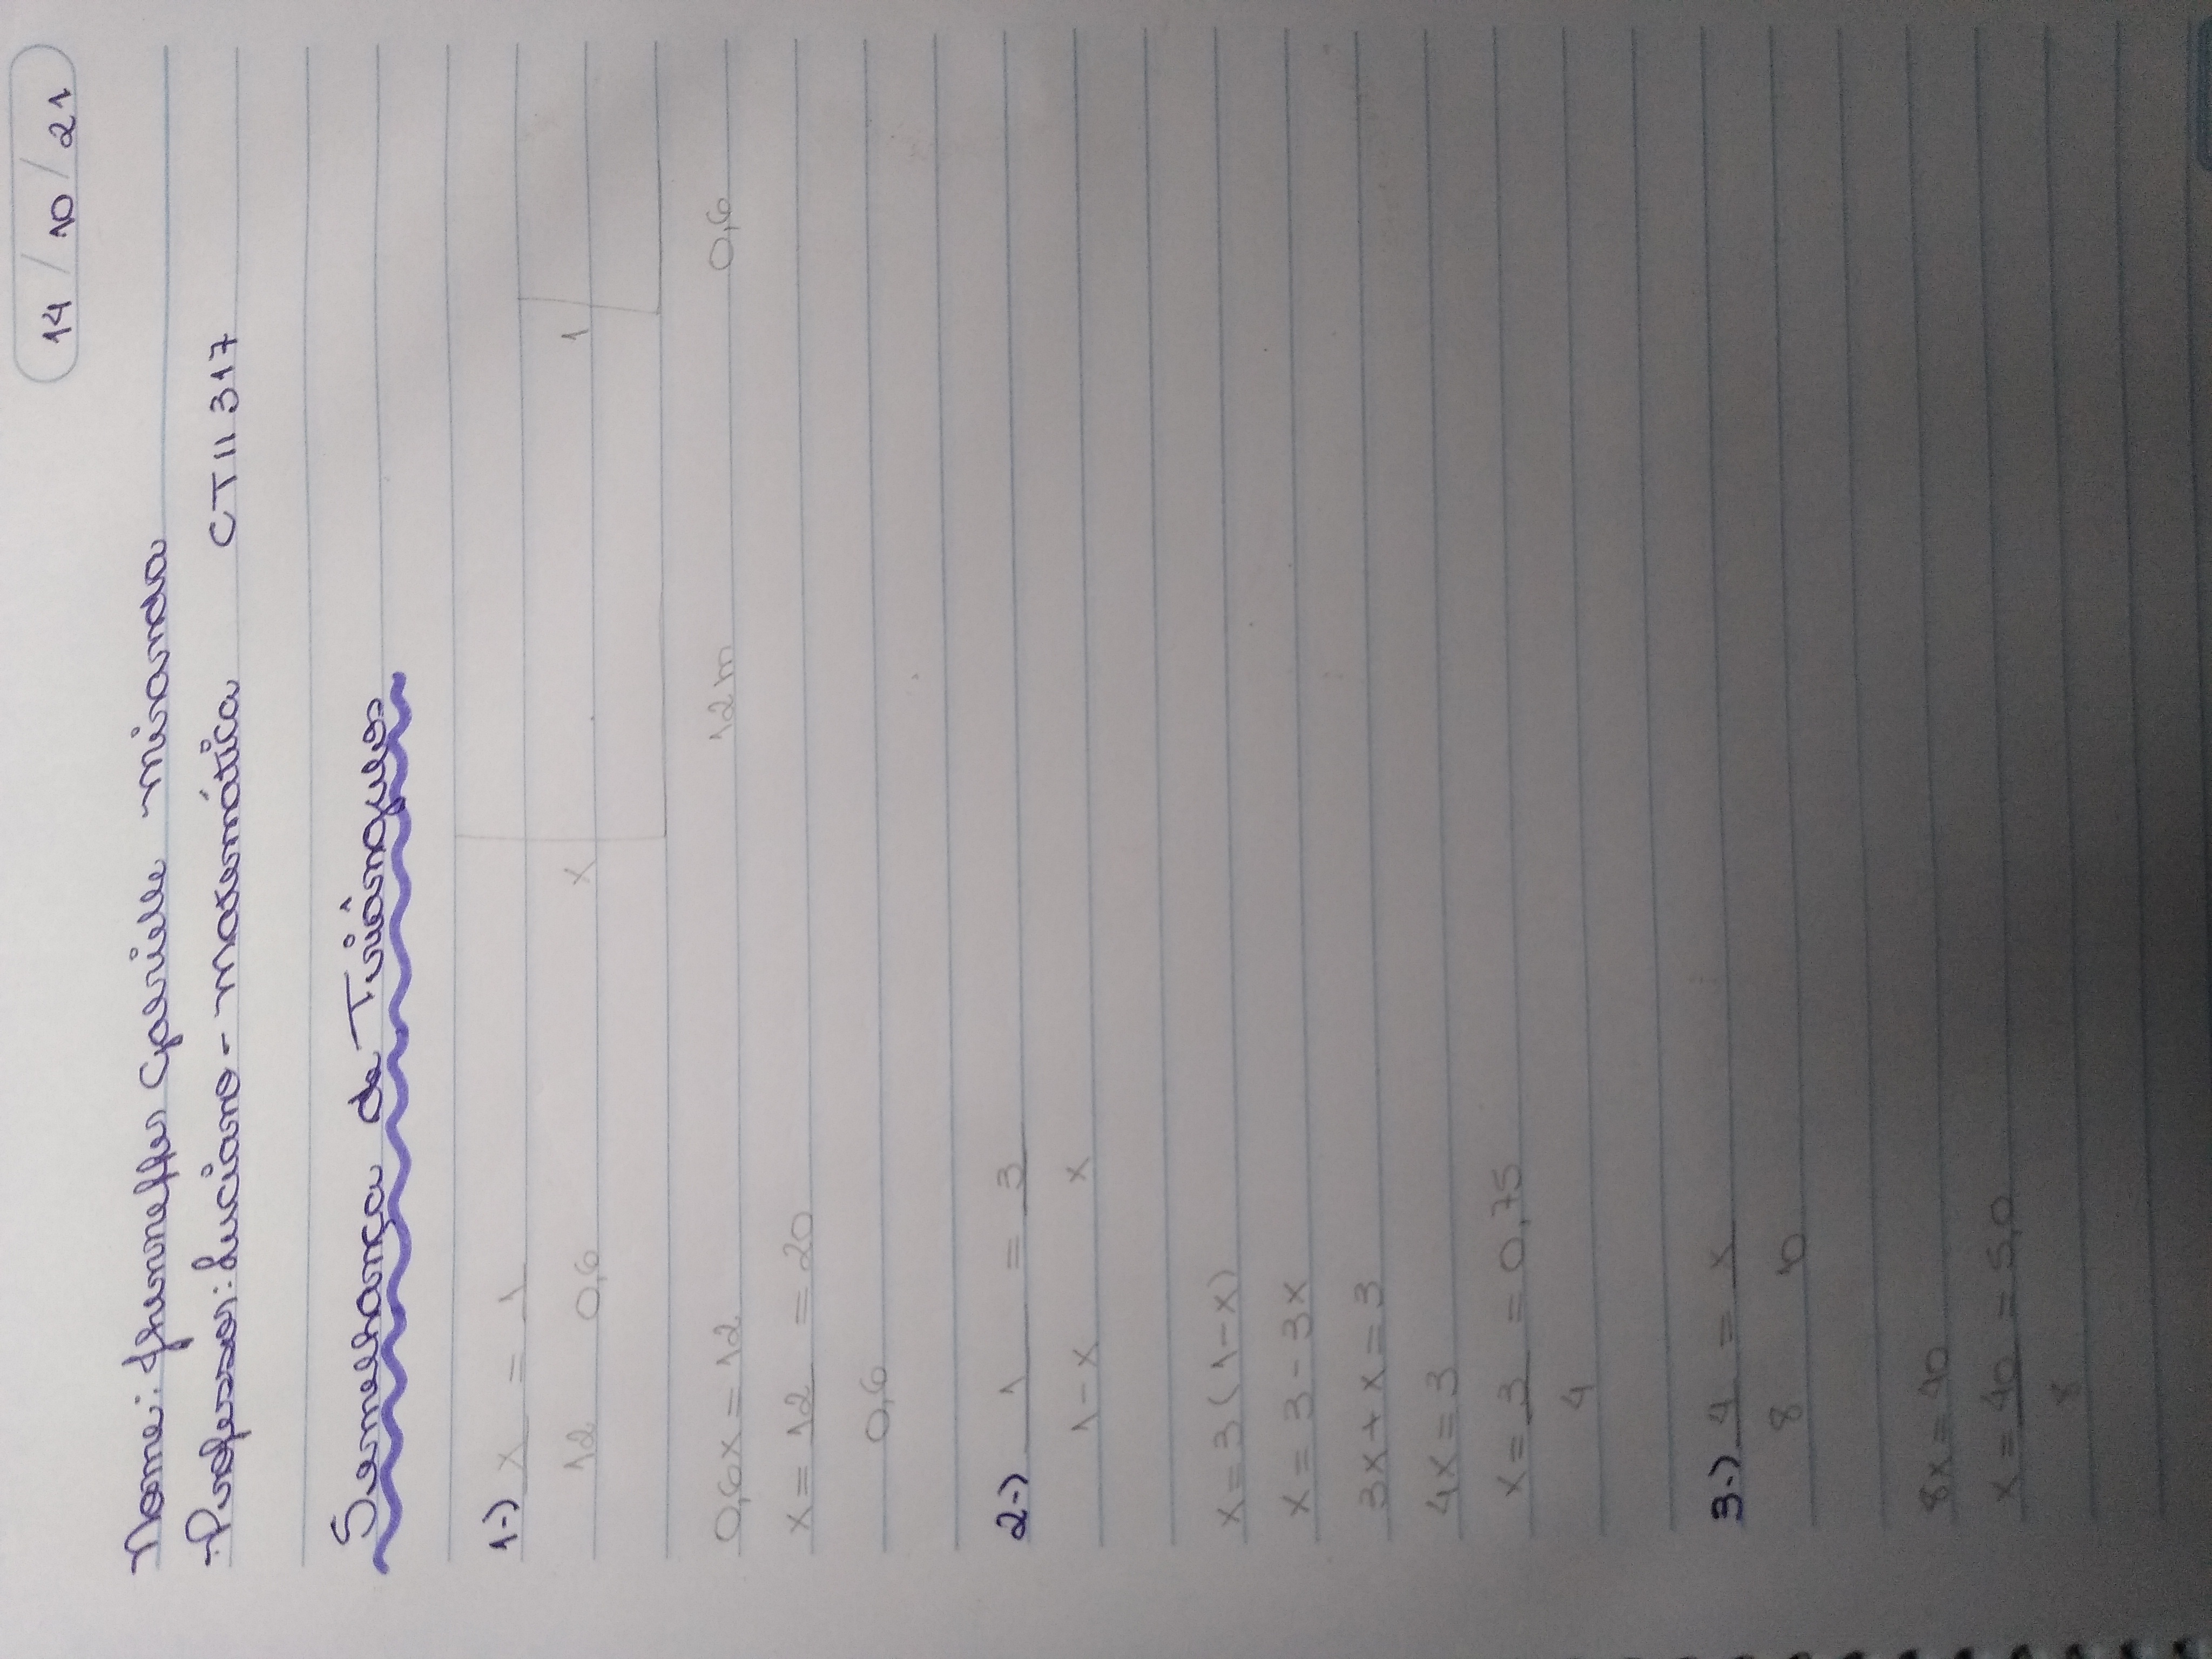 14 / 10 / 21
Nome: Jhenneffer Gabrielle Miranda
Professor: Luciano - Matemática CTII 317
Semelhança de Triângulos
1-) x = 1
12 0,6
x 1
0,6x = 12 12m 0,6
x = 12 = 20
0,6
2-) 1 = 3
1-x x
x = 3(1-x)
x = 3 - 3x
3x + x = 3
4x = 3
x = 3 = 0,75
4
3-) 4 = x
8 10
8x = 40
x = 40 = 5,0
8